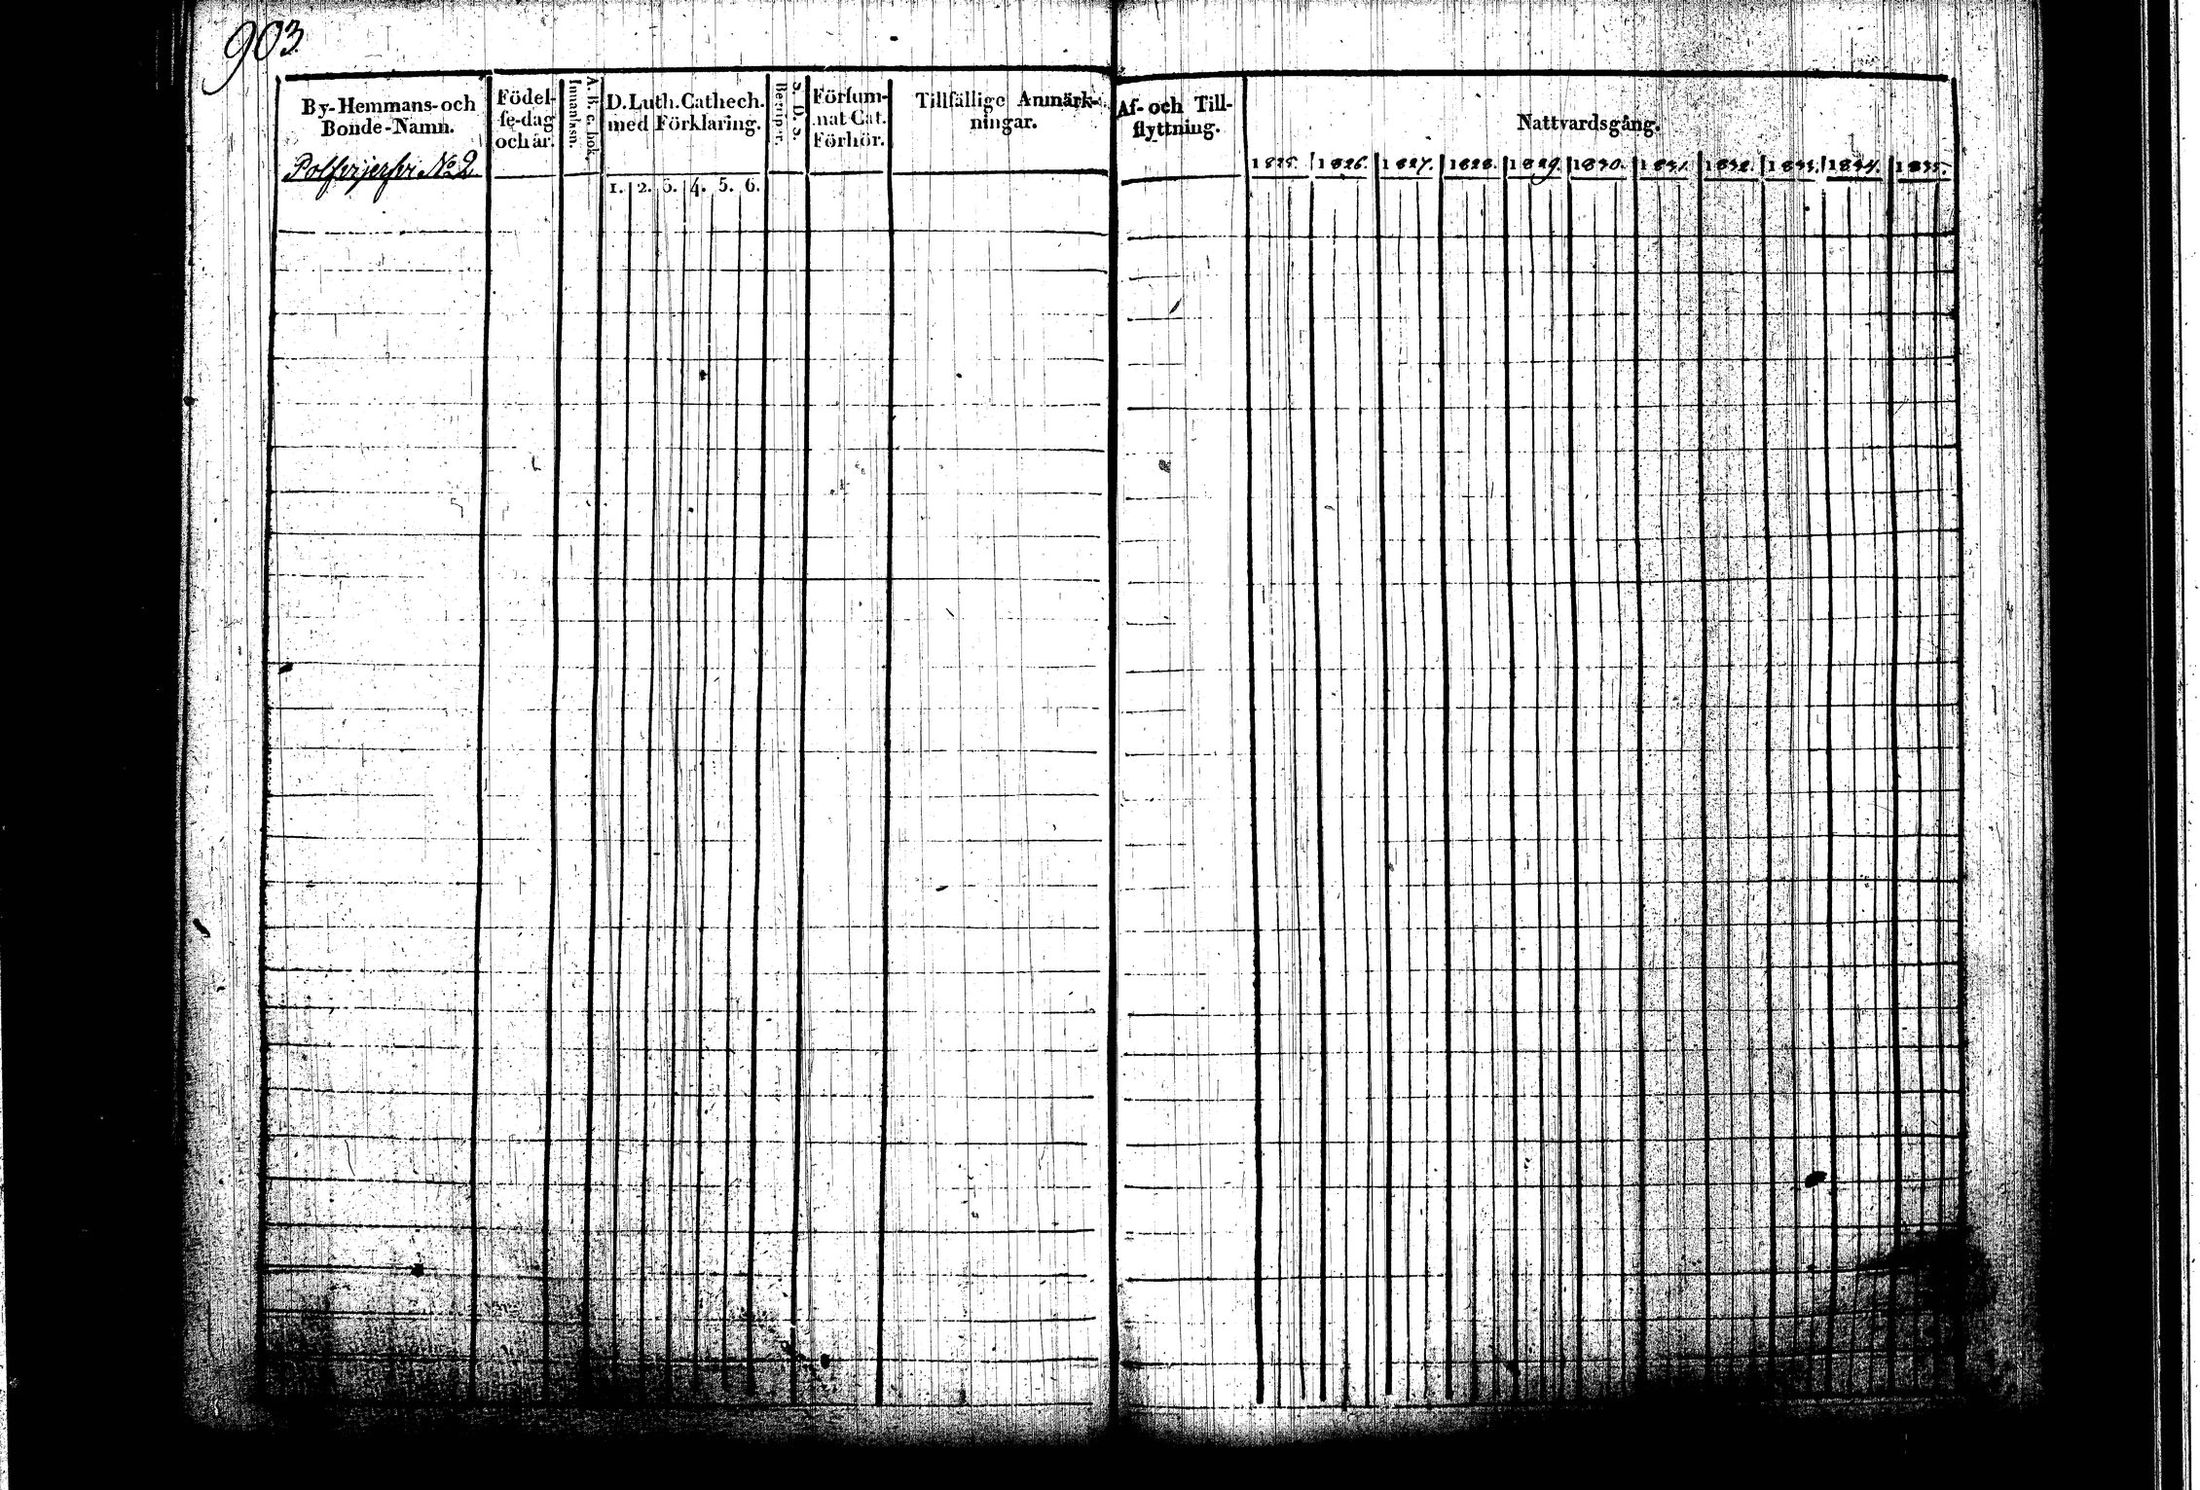 903
By-Hemmans-och
Bonde-Namn.
No 2
Födel-
se-dag
och år.
A. B. c. bok.
Innanläsn.
D. Luth. Cathech.
med Förklaring.
1. 2. 3. 4. 5. 6.
S. D. S.
Begriper.
Försum-
nat Cat.
Förhör.
Tillfällige Anmärk-
ningar.
Af- och Till-
flyttning.
Nattvardsgång.
1825. 1826. 1827. 1828. 1829. 1830. 1831. 1832. 1833. 1834. 1835.